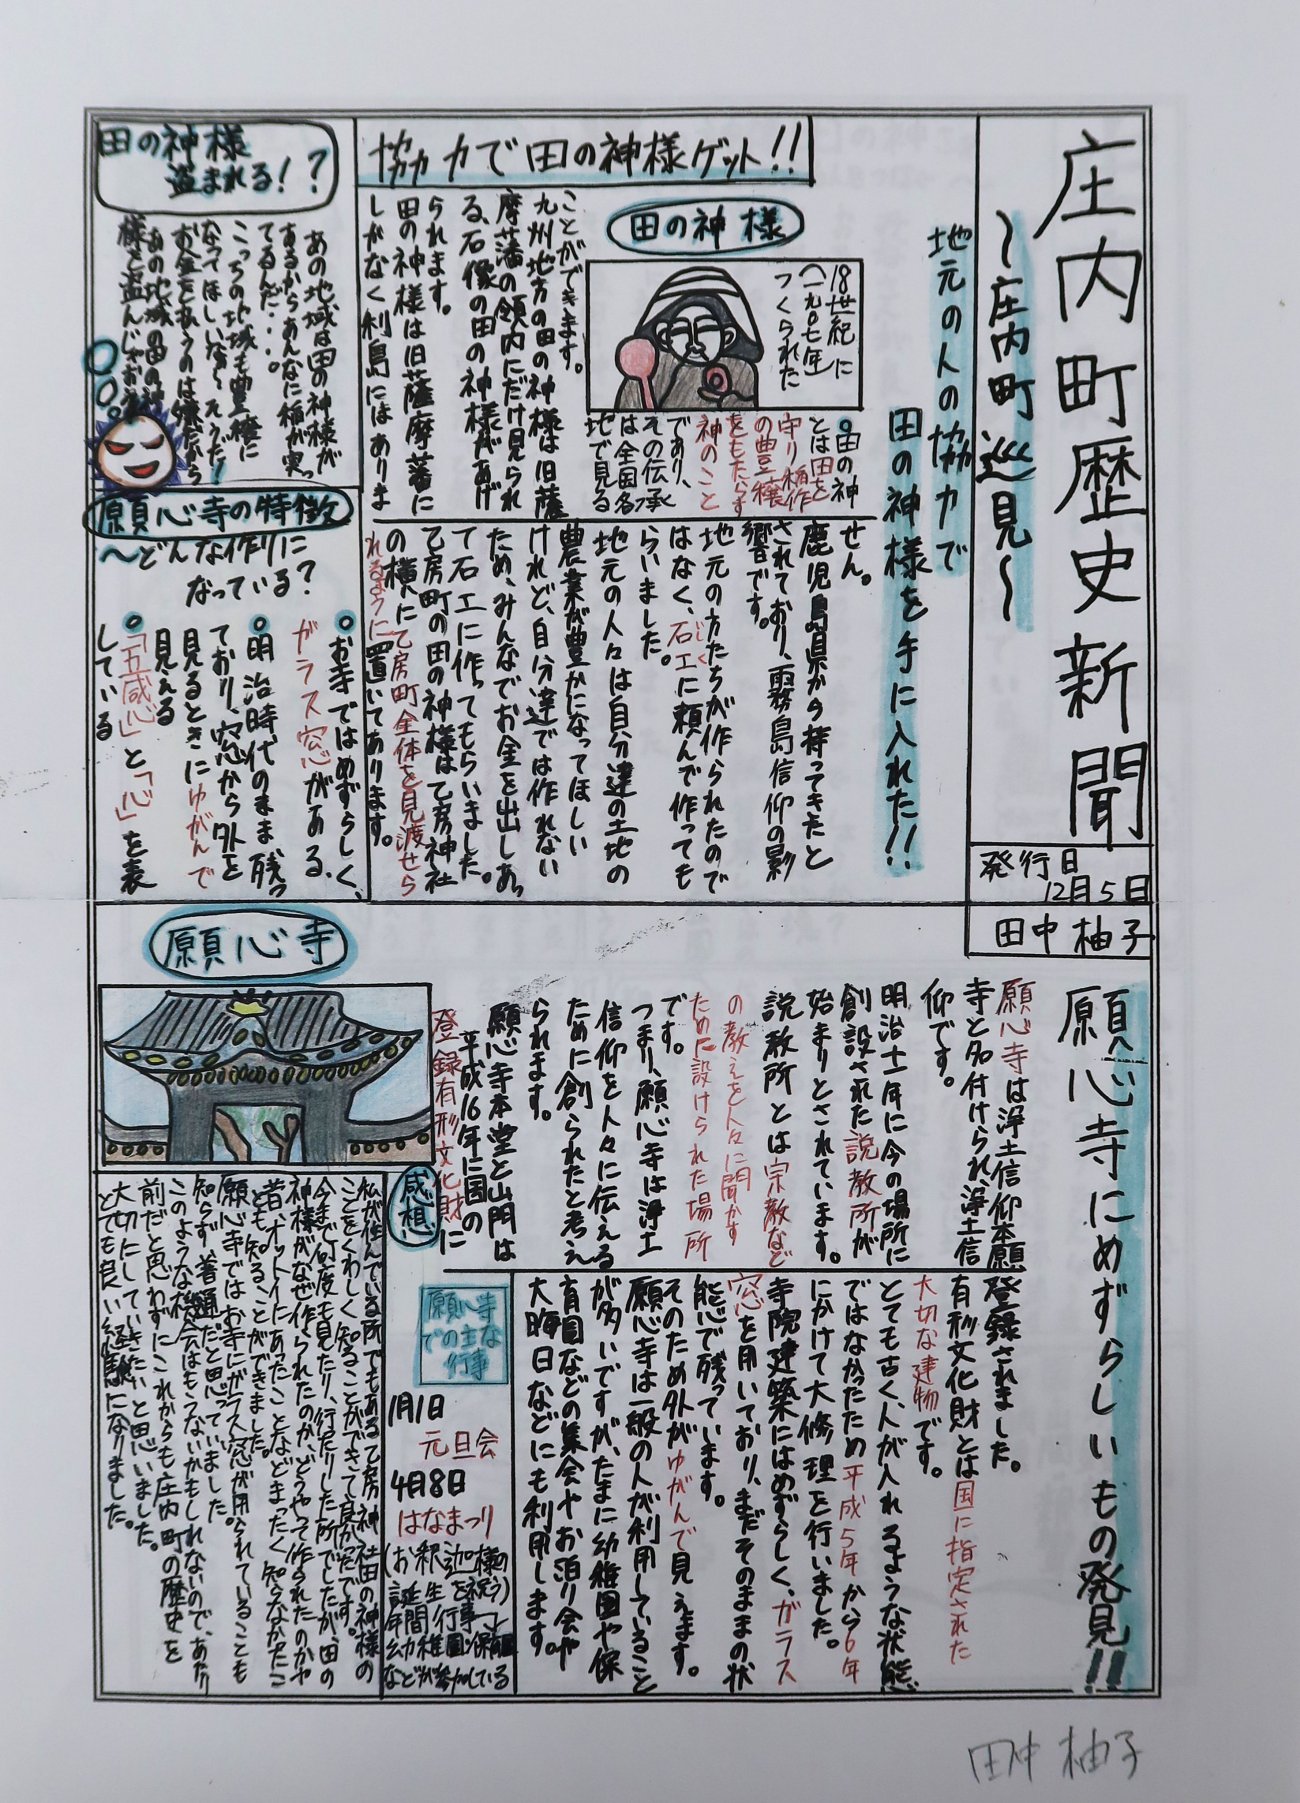 庄内町歴史新聞
〜庄内町巡見〜
発行日
12月5日
田中柚子
地元の人の協力で
田の神様を手に入れた!!
協力で田の神様ゲット!!
田の神様
18世紀に
(一九〇七年)
つくられた
田の神
とは田を
守り稲作
の豊穣
をもたらす
神のこと
であり、
その伝承
は全国各
地で見る
ことができます。
九州地方の田の神様は旧薩
摩藩の領内にだけ見られ
る、石像の田の神様があげ
られます。
田の神様は旧薩摩藩に
しがなく利島にはありま
せん。
鹿児島県から持ってきたと
されており、霧島信仰の影
響です。
地元の方たちが作られたので
はなく、石工に頼んで作っても
らいました。
地元の人々は自分達の土地の
農業が豊かになってほしい
けれど、自分達では作れない
ため、みんなでお金を出しあっ
て石工に作ってもらいました。
乙房町の田の神様は乙房神社
の横に乙房町全体を見渡せら
れるように置いてあります。
田の神様
盗まれる!?
あの地域は田の神様が
あるからあんなに稲が実っ
てるんだ・・・。
こっちの地域も豊穣に
なってほしいな〜
お金をはらうのは嫌だから
あの地域の田の神
様を盗んじゃおう
願心寺の特徴
〜どんな作りに
なっている?
お寺ではめずらしく、
ガラス窓がある。
明治時代のまま残っ
ており、窓から外を
見るときにゆがんで
見える
「五感心」と「心」を表
している
願心寺にめずらしいもの発見!!
願心寺は浄土信仰本願
寺と名付けられ、浄土信
仰です。
明治十一年に今の場所に
創設された説教所が
始まりとされています。
説教所とは宗教など
の教えを人々に聞かす
ために設けられた場所
です。
つまり、願心寺は浄土
信仰を人々に伝える
ために創られたと考え
られます。
願心寺本堂と山門は
平成16年に国の
登録有形文化財に
登録されました。
有形文化財とは国に指定された
大切な建物です。
とても古く、人が入れるような状態
ではなかったため平成5年から6年
にかけて大修理を行いました。
寺院建築にはめずらしく、ガラス
窓を用いており、まだそのままの状
態で残っています。
そのため外がゆがんで見えます。
願心寺は一般の人が利用していること
が多いですが、たまに幼稚園や保
育園などの集会やお泊り会や
大晦日などにも利用します。
願心寺
願心寺
での主な
行事
1月1日
元旦会
4月8日
はなまつり
(お釈迦様の
誕生を祝う
年間行事)
幼稚園、保育園
などが参加している
感想
私が住んでいる所でもある乙房神社田の神様の
ことをくわしく知ることができて良かったです。
今まで何度も見たり、行ったりした所でしたが、田の
神様がなぜ作られたのか、どうやって作られたのかや
昔、オットイにあったことなどまったく知らなかったこ
とも、知ることができました。
願心寺ではお寺にガラス窓が用られていることも
知らず、普通だと思っていました。
このような機会はもうないかもしれないので、あたり
前だと思わずにこれからも庄内町の歴史を
大切にしていきたいと思いました。
とても良い経験になりました。
田中柚子